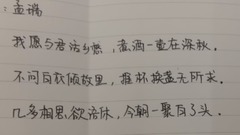 ：孟瑞
我愿与君话乡愁，煮酒一壶在深秋．
不问白秋倾故里，推杯换盏无所求．
几多相思欲语休，今朝一聚白了头．